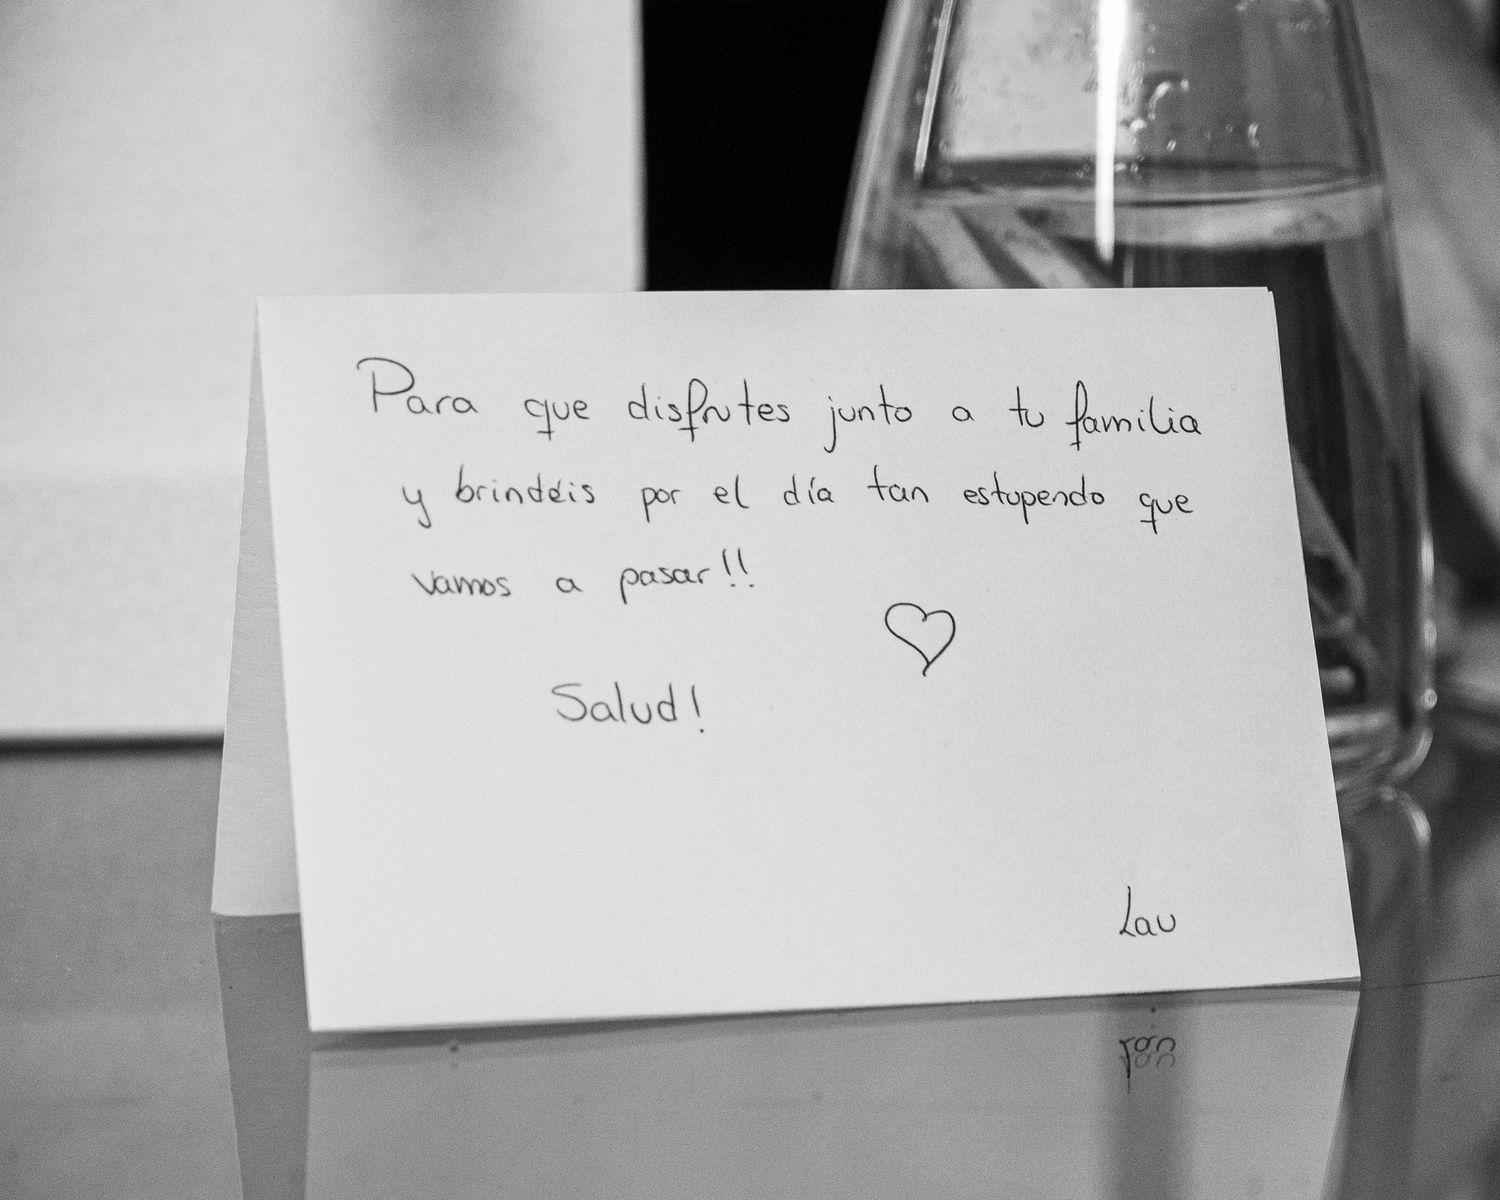 Para que disfrutes junto a tu familia
y brindéis por el día tan estupendo que
vamos a pasar!!
Salud!
Lau